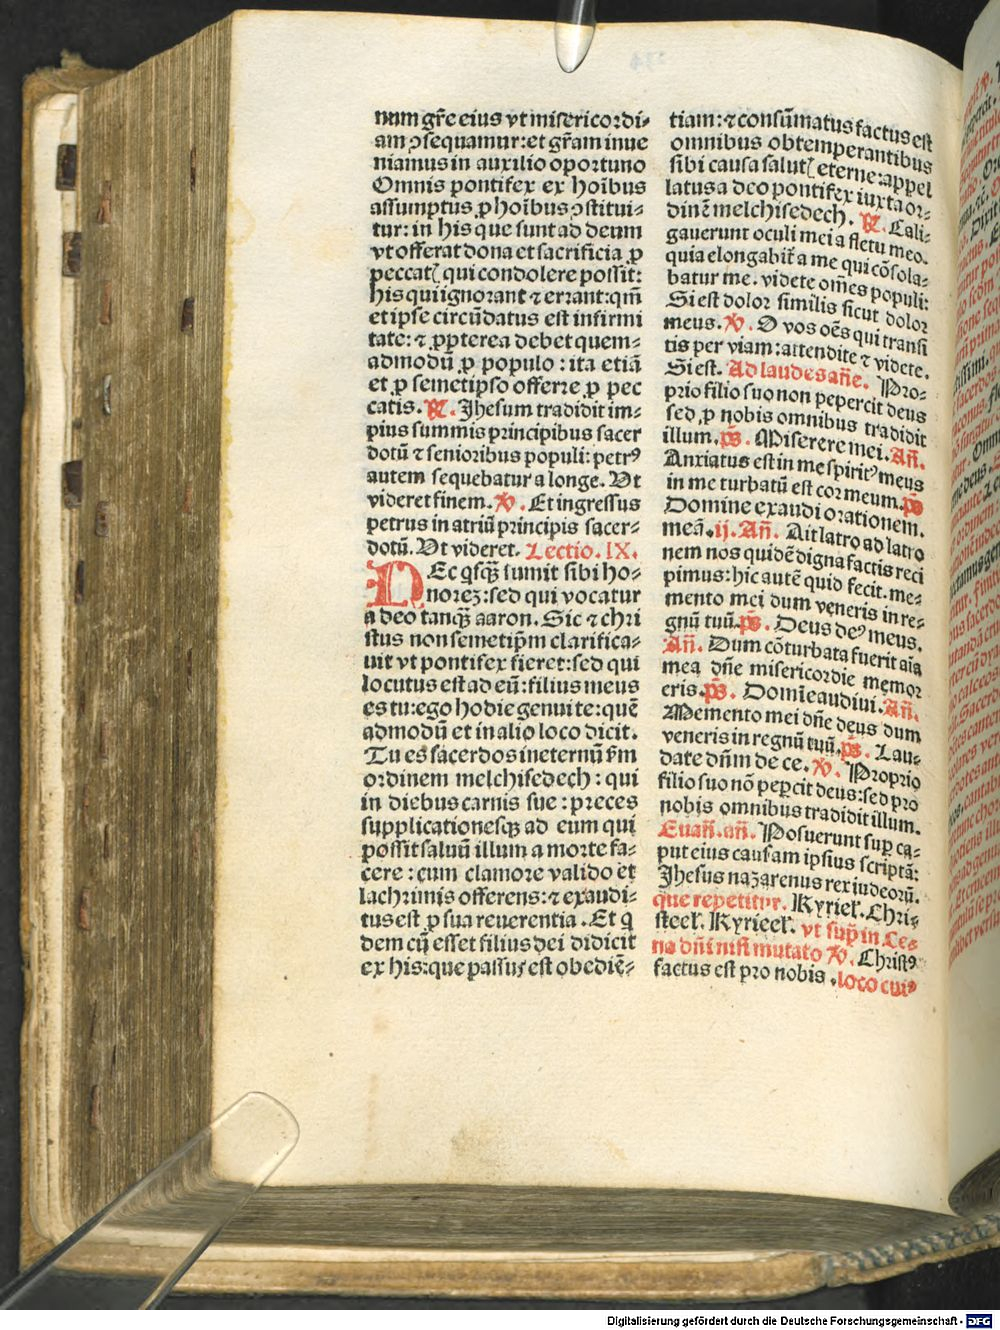 num gr̄e eius vt misericordi⸗
am ꝯsequamur: et gr̄am inue
niamus in auxilio oportuno
Omnis pontifex ex hoībus
assumptus ꝓ hoībus ꝯstitui⸗
tur: in his que sunt ad deum
vt offerat dona et sacrificia ꝓ
peccatꝭ qui condolere possit:
his qui ignorant ⁊ errant: qm̄
et ipse circūdatus est infirmi
tate: ⁊ ꝓpterea debet quem⸗
admodū ꝓ populo: ita etiā
et ꝓ semetipso offerre ꝓ pec
catis. ℟. Jhesum tradidit im⸗
pius summis principibus sacer
dotū ⁊ senioribus populi: petrꝰ
autem sequebatur a longe. Ut
videret finem. ℣. Et ingressus
petrus in atriū principis sacer⸗
dotū. Ut videret. Lectio. IX.
NEc qͥsqͣꝫ sumit sibi ho⸗
norez: sed qui vocatur
a deo tanqͣꝫ aaron. Sic ⁊ chri
stus non semetip̄m clarifica⸗
uit vt pontifex fieret: sed qui
locutus est ad eū: filius meus
es tu: ego hodie genui te: quē
admodū et in alio loco dicit.
Tu es sacerdos in eternū ẜm
ordinem melchisedech: qui
in diebus carnis sue: preces
supplicationesqꝫ ad eum qui
possit saluū illum a morte fa⸗
cere: cum clamore valido et
lachrimis offerens: ⁊ exaudi⸗
tus est ꝓ sua reuerentia. Et qͥ
dem cū esset filius dei didicit
ex his: que passus est obediē⸗
tiam: ⁊ consūmatus factus est
omnibus obtemperantibus
sibi causa salutꝭ eterne: appel
latus a deo pontifex iuxta or⸗
dinē melchisedech. ℟. Cali⸗
gauerunt oculi mei a fletu meo.
quia elongabit̄ a me qui cōsola⸗
batur me. videte om̄es populi:
Si est dolor similis sicut dolor
meus. ℣. O vos oēs qui transi
tis per viam: attendite ⁊ videte.
Si est. Ad laudes an̄e. Pro⸗
prio filio suo non pepercit deus
sed ꝓ nobis omnibus tradidit
illum. p̄s. Miserere mei. An̄.
Anxiatus est in me spiritꝰ meus
in me turbatū est cor meum. p̄s
Domine exaudi orationem.
meā. ij. An̄. Ait latro ad latro
nem nos quidē digna factis reci
pimus: hic autē quid fecit. me⸗
mento mei dum veneris in re⸗
gnū tuū. p̄s. Deus deꝰ meus.
An̄. Dum cōturbata fuerit aīa
mea dn̄e misericordie memor
eris. p̄s. Domīe audiui. An̄.
Memento mei dn̄e deus dum
veneris in regnū tuū. p̄s. Lau⸗
date dn̄m de ce. ℣. Proprio
filio suo nō peꝑcit deus: sed pro
nobis omnibus tradidit illum.
Euan̄. an̄. Posuerunt suꝑ ca⸗
put eius causam ipsius scriptā:
Jhesus nazarenus rex iudeorū.
que repetitur. Kyriel̄. Chri⸗
steel̄. Kyrieel̄. vt sup̄ in Ce⸗
na dn̄i nisi mutato ℣. Christꝰ
factus est pro nobis. loco cuiꝰ
Digitalisierung gefördert durch die Deutsche Forschungsgemeinschaft - DFG